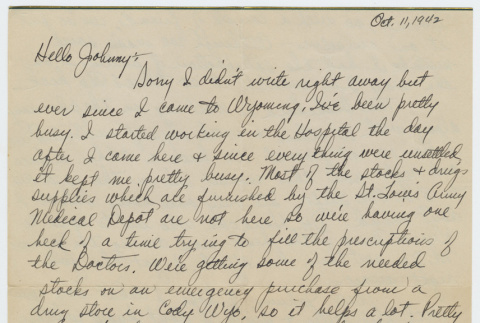 Oct. 11, 1942
Hello Johnny:-
Sorry I didn't write right away but
ever since I came to Wyoming, I've been pretty
busy. I started working in the Hospital the day
after I came here & since everything were unsettled,
it kept me pretty busy. Most of the stocks & drugs
supplies which are furnished by the St. Louis Army
Medical Depot are not here so we're having one
heck of a time trying to fill the prescriptions of
the Doctors. We're getting some of the needed
stocks on an emergency purchase from a
drug store in Cody Wyo, so it helps a lot. Pretty